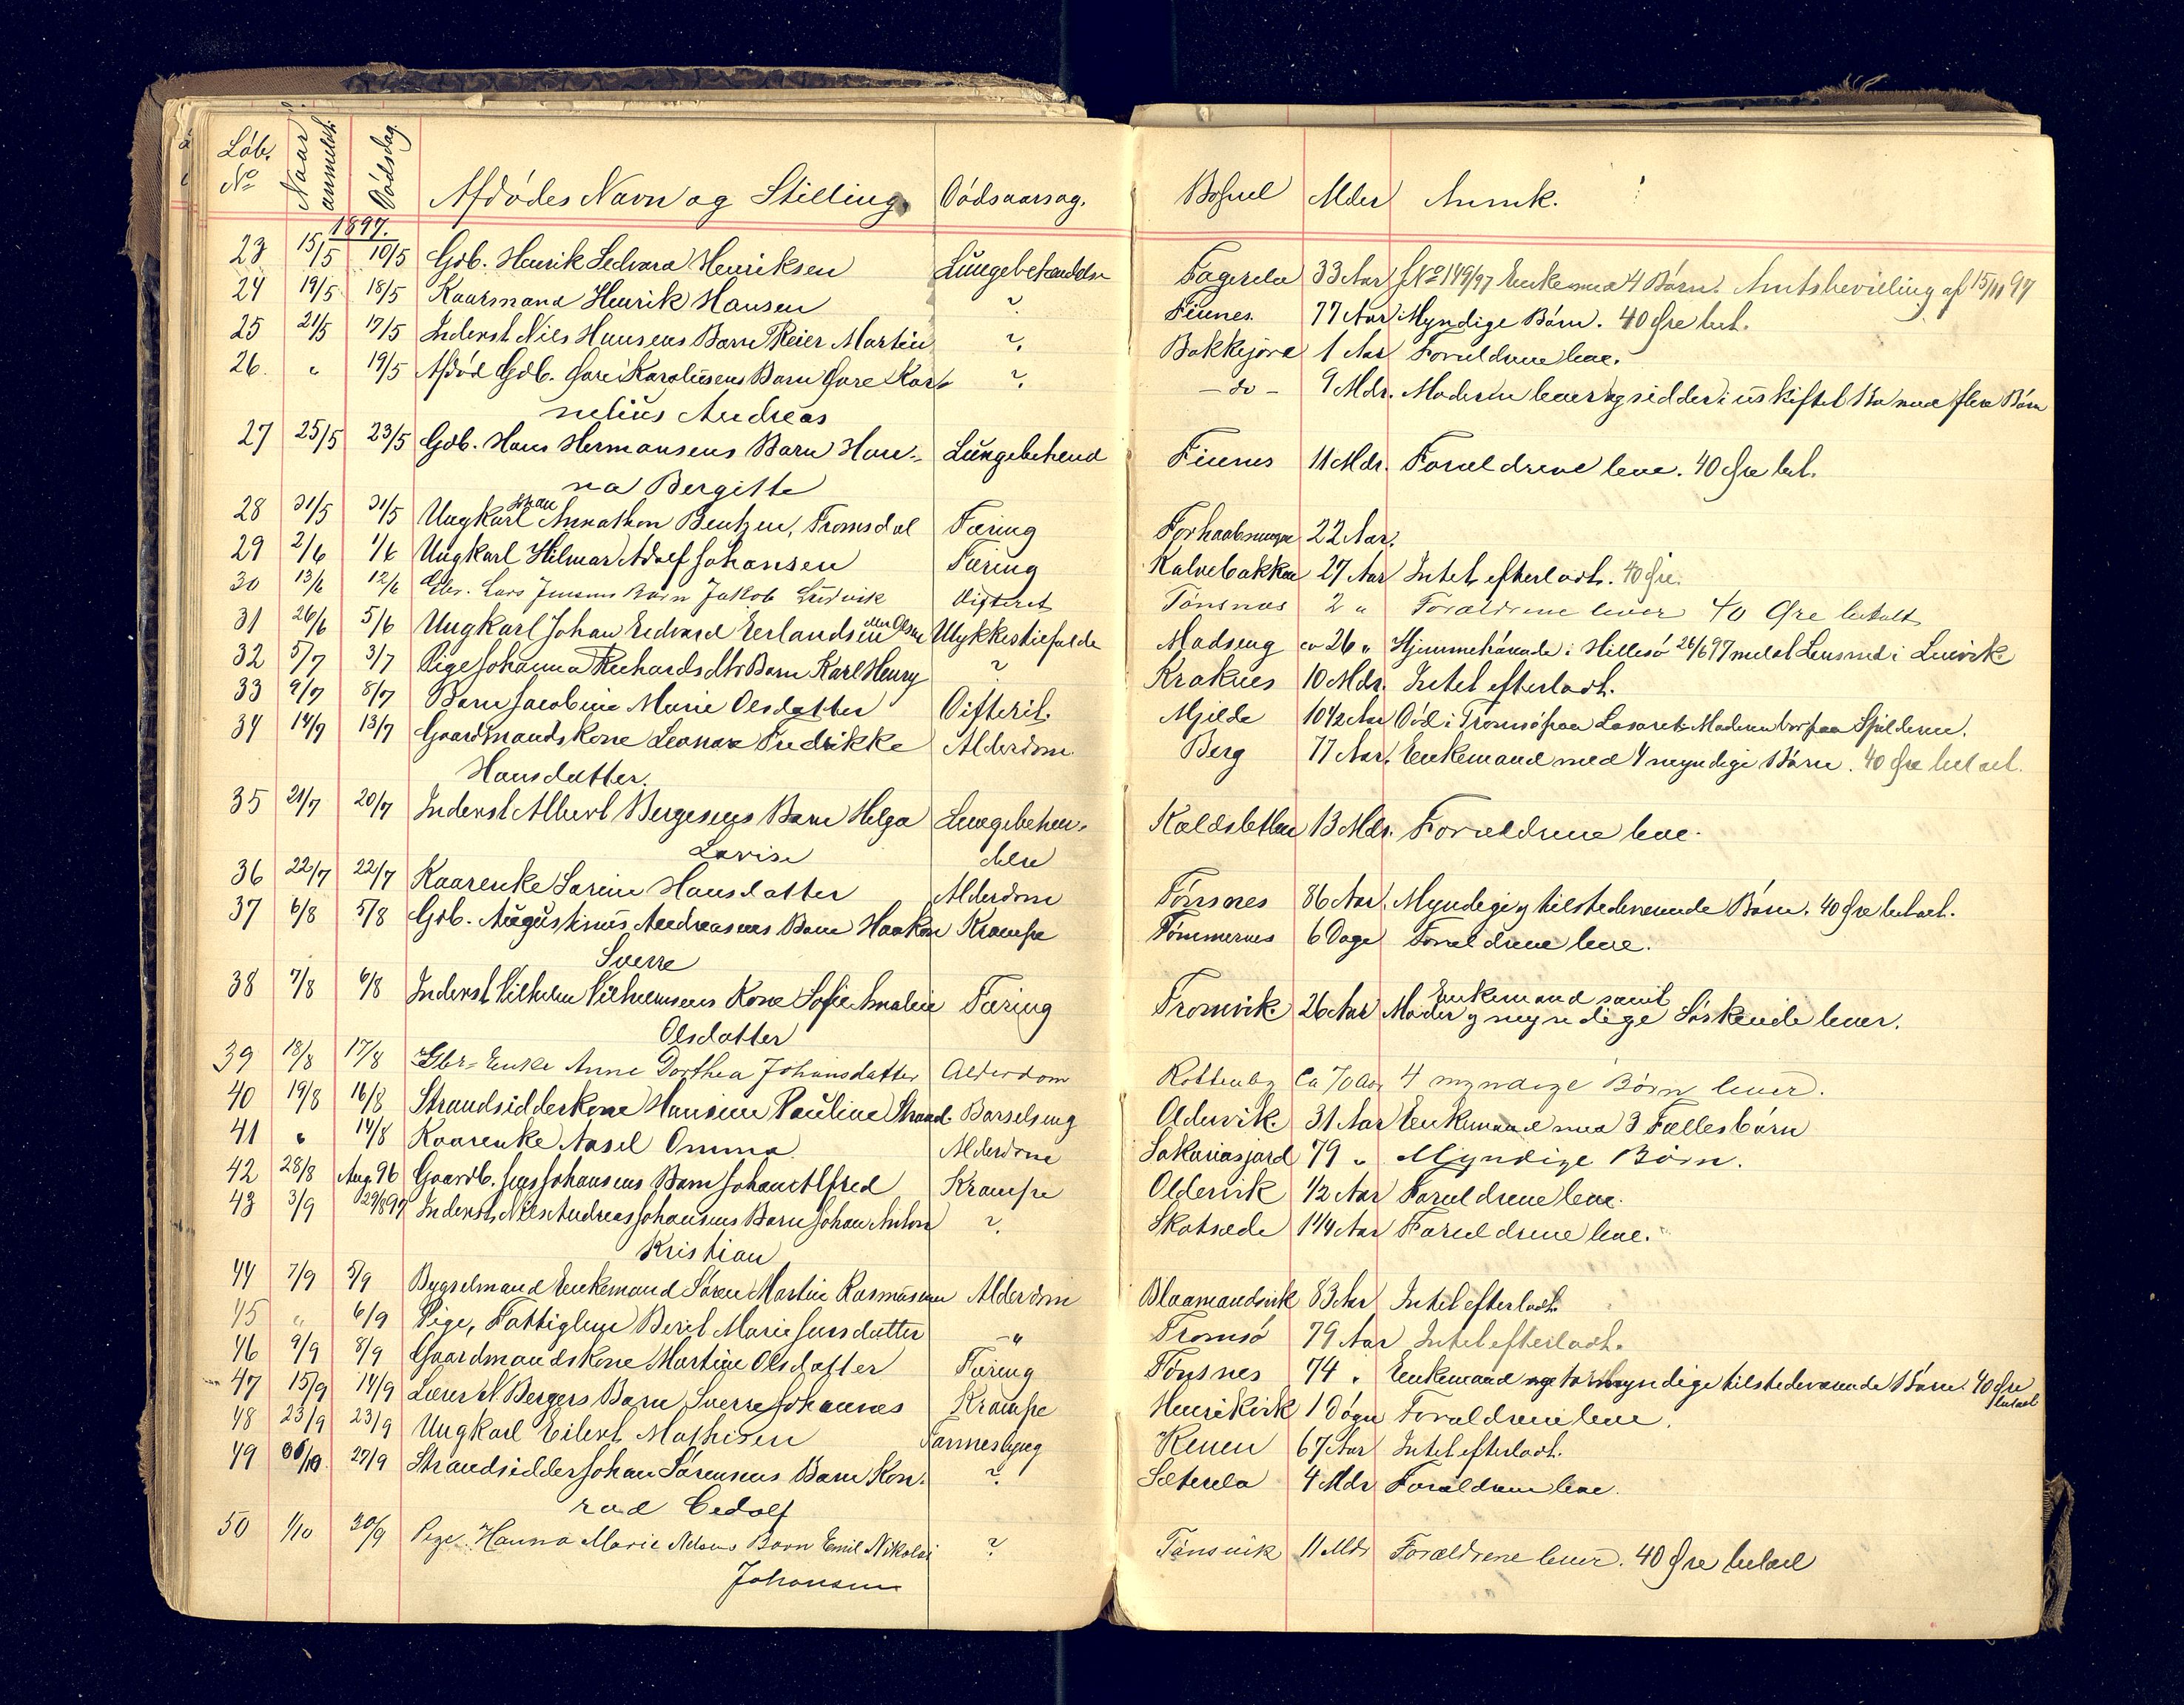 Löb. No Naar anmeldt. Dödsdag. Afdödes Navn og Stilling. Dödsaarsag. Bosted Alder Anmk.
1897.
23 15/5 10/5 Gdb. Henrik Edvard Henriksen Lungebetændelse Fagerela 33 Aar No 149/97 Enke med 4 Børn. Amtsbevilling af 15/11 97
24 19/5 18/5 Kaarmand Henrik Hansen ? Finnes 77 Aar Myndige Børn. 40 Øre bet.
25 21/5 17/5 Inderst Nils Hansens Barn Reier Martin ? Bakkejord 1 Aar Forældrene leve.
26. " 19/5 Afdöd Gdb. Karolinsens Barn ? - do - 9 Mdr. Moderen lever og sidder i uskiftet Bo med flere Börn
nelius Andreas
27 25/5 23/5 Gdb. Hans Hermansens Barn Han- Lungebetænd Finnes 11 Mdr. Forældrene leve. 40 Øre bet.
na Bergitte
28 31/5 31/5 Ungkarl Annathon Bentzen, Tromsdal Tæring Forhaabningen 22 Aar.
29 2/6 1/6 Ungkarl Hilmar Adolf Johansen Tæring Kalvebakken 27 Aar Intet efterladt. 40 Øre.
30 13/6 12/6 Gbr. Lars Jensens Barn Jakob Ludvik Difterit Tönsnes 2 " Forældrene lever 40 Øre betalt
31 26/6 5/6 Ungkarl Johan Edvard Erlandsen Ulykkestilfælde Madseng ca 26 " Hjemmehörende i Hillesö 26/6 97 meldt Lensmd i Lenvik.
32 5/7 3/7 Pige Johanna Richardsdtr Barn Karl Henry ? Kraknes 10 Mdr. Intet efterladt.
33 9/7 8/7 Barn Jacobine Marie Olsdatter Difterit. Mjelde 10 1/2 Aar Död i Tromsö paa Lasaret. Moderen bor paa Spildern.
34 14/7 13/7 Gaardmandskone Leonore Fredrikke Alderdom Berg 77 Aar. Enkemand med 4 myndige Börn. 40 Øre betalt.
Hansdatter.
35 21/7 20/7 Inderst Albert Bergesens Barn Helga Lungebetæn- Kaldsletten 13 Mdr. Forældrene leve.
Lovise delse
36 22/7 22/7 Kaarenke Sarine Hansdatter Alderdom Tönsnes 86 Aar. Myndige og tilstedeværende Börn. 40 Øre betalt.
37 6/8 5/8 Gdb. Augustinus Andreasens Barn Haakon Krampe Tömmernes 6 Dage Forældrene leve.
Sverre
38 7/8 6/8 Inderst Vilhelm Vilhelmsens Kone Sofie Amalie Tæring Tromvik. 26 Aar Enkemand samt Moder og myndige Söskende lever.
Olsdatter
39 18/8 17/8 Gbr- Enke Anne Dorthea Johansdatter Alderdom Kattenby Ca 70 Aar 4 myndige Børn lever.
40 19/8 16/8 Strandsidderkone Hansine Pauline Strand Barselseng Oldervik. 31 Aar Enkemand med 3 Fællesbörn
41 " 14/8 Kaarenke Aasel Omma Alderdom Sakariasjord 79 " Myndige Børn.
42 28/8 Aug. 96 Gaardb. Jens Johansens Barn Johan Alfred Krampe Oldervik 1/2 Aar Forældrene leve.
43 3/9 29/8 97 Inderst Nils Andreas Johansens Barn Johan Anton ? Skatsede 1 1/4 Aar Forældrene leve.
Kristian
44 7/9 5/9 Bygselmand Enkemand Sören Martin Rasmussen Alderdom Blaamandsvik 83 Aar Intet efterladt.
45 " 6/9 Pige, Fattiglem Berit Marie Jensdatter -" Tromsö 79 Aar Intet efterladt.
46 9/9 8/9 Gaardmandskone Martine Olsdatter Tæring Tönsnes 74 " Enkemand og myndige tilstedeværende Börn. 40 Øre betalt
47 15/9 14/9 Lærer N. Bergers Barn Sverre Johannes Krampe Henrikvik 1 Dögn Forældrene leve.
48 23/9 23/9 Ungkarl Eilert Mathisen Sarmeslyng Kenen 67 Aar Intet efterladt.
49 27/9 Strandsidder Johan Sörensens Barn Kon- ? Sæterela 4 Mdr Forældrene leve.
rad Cedolf
50 1/10 30/9 Pige Hanna Marie Nelsens Barn Emil Nikolai ? Tönsvik 11 Mdr Forældrene lever. 40 Øre betalt
Johansen